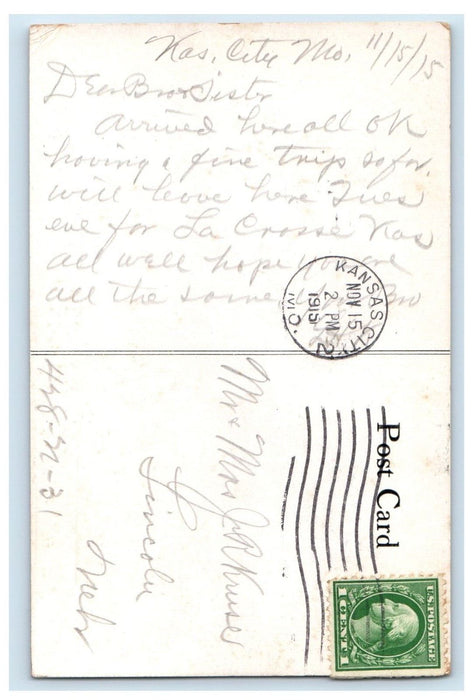 Kas. City Mo. 11/15/15
Dear Bro & Sister
Arrived here all OK
having a fine trip so far.
will leave here Tues
eve for La Crosse Kas
all well hope you are
all the same your Bro
KANSAS CITY 2 MO.
NOV 15
2 PM
1915
Post Card
Mr & Mrs J R
Lincoln
Nebr
428-N-31
U.S. POSTAGE
1 CENT 1